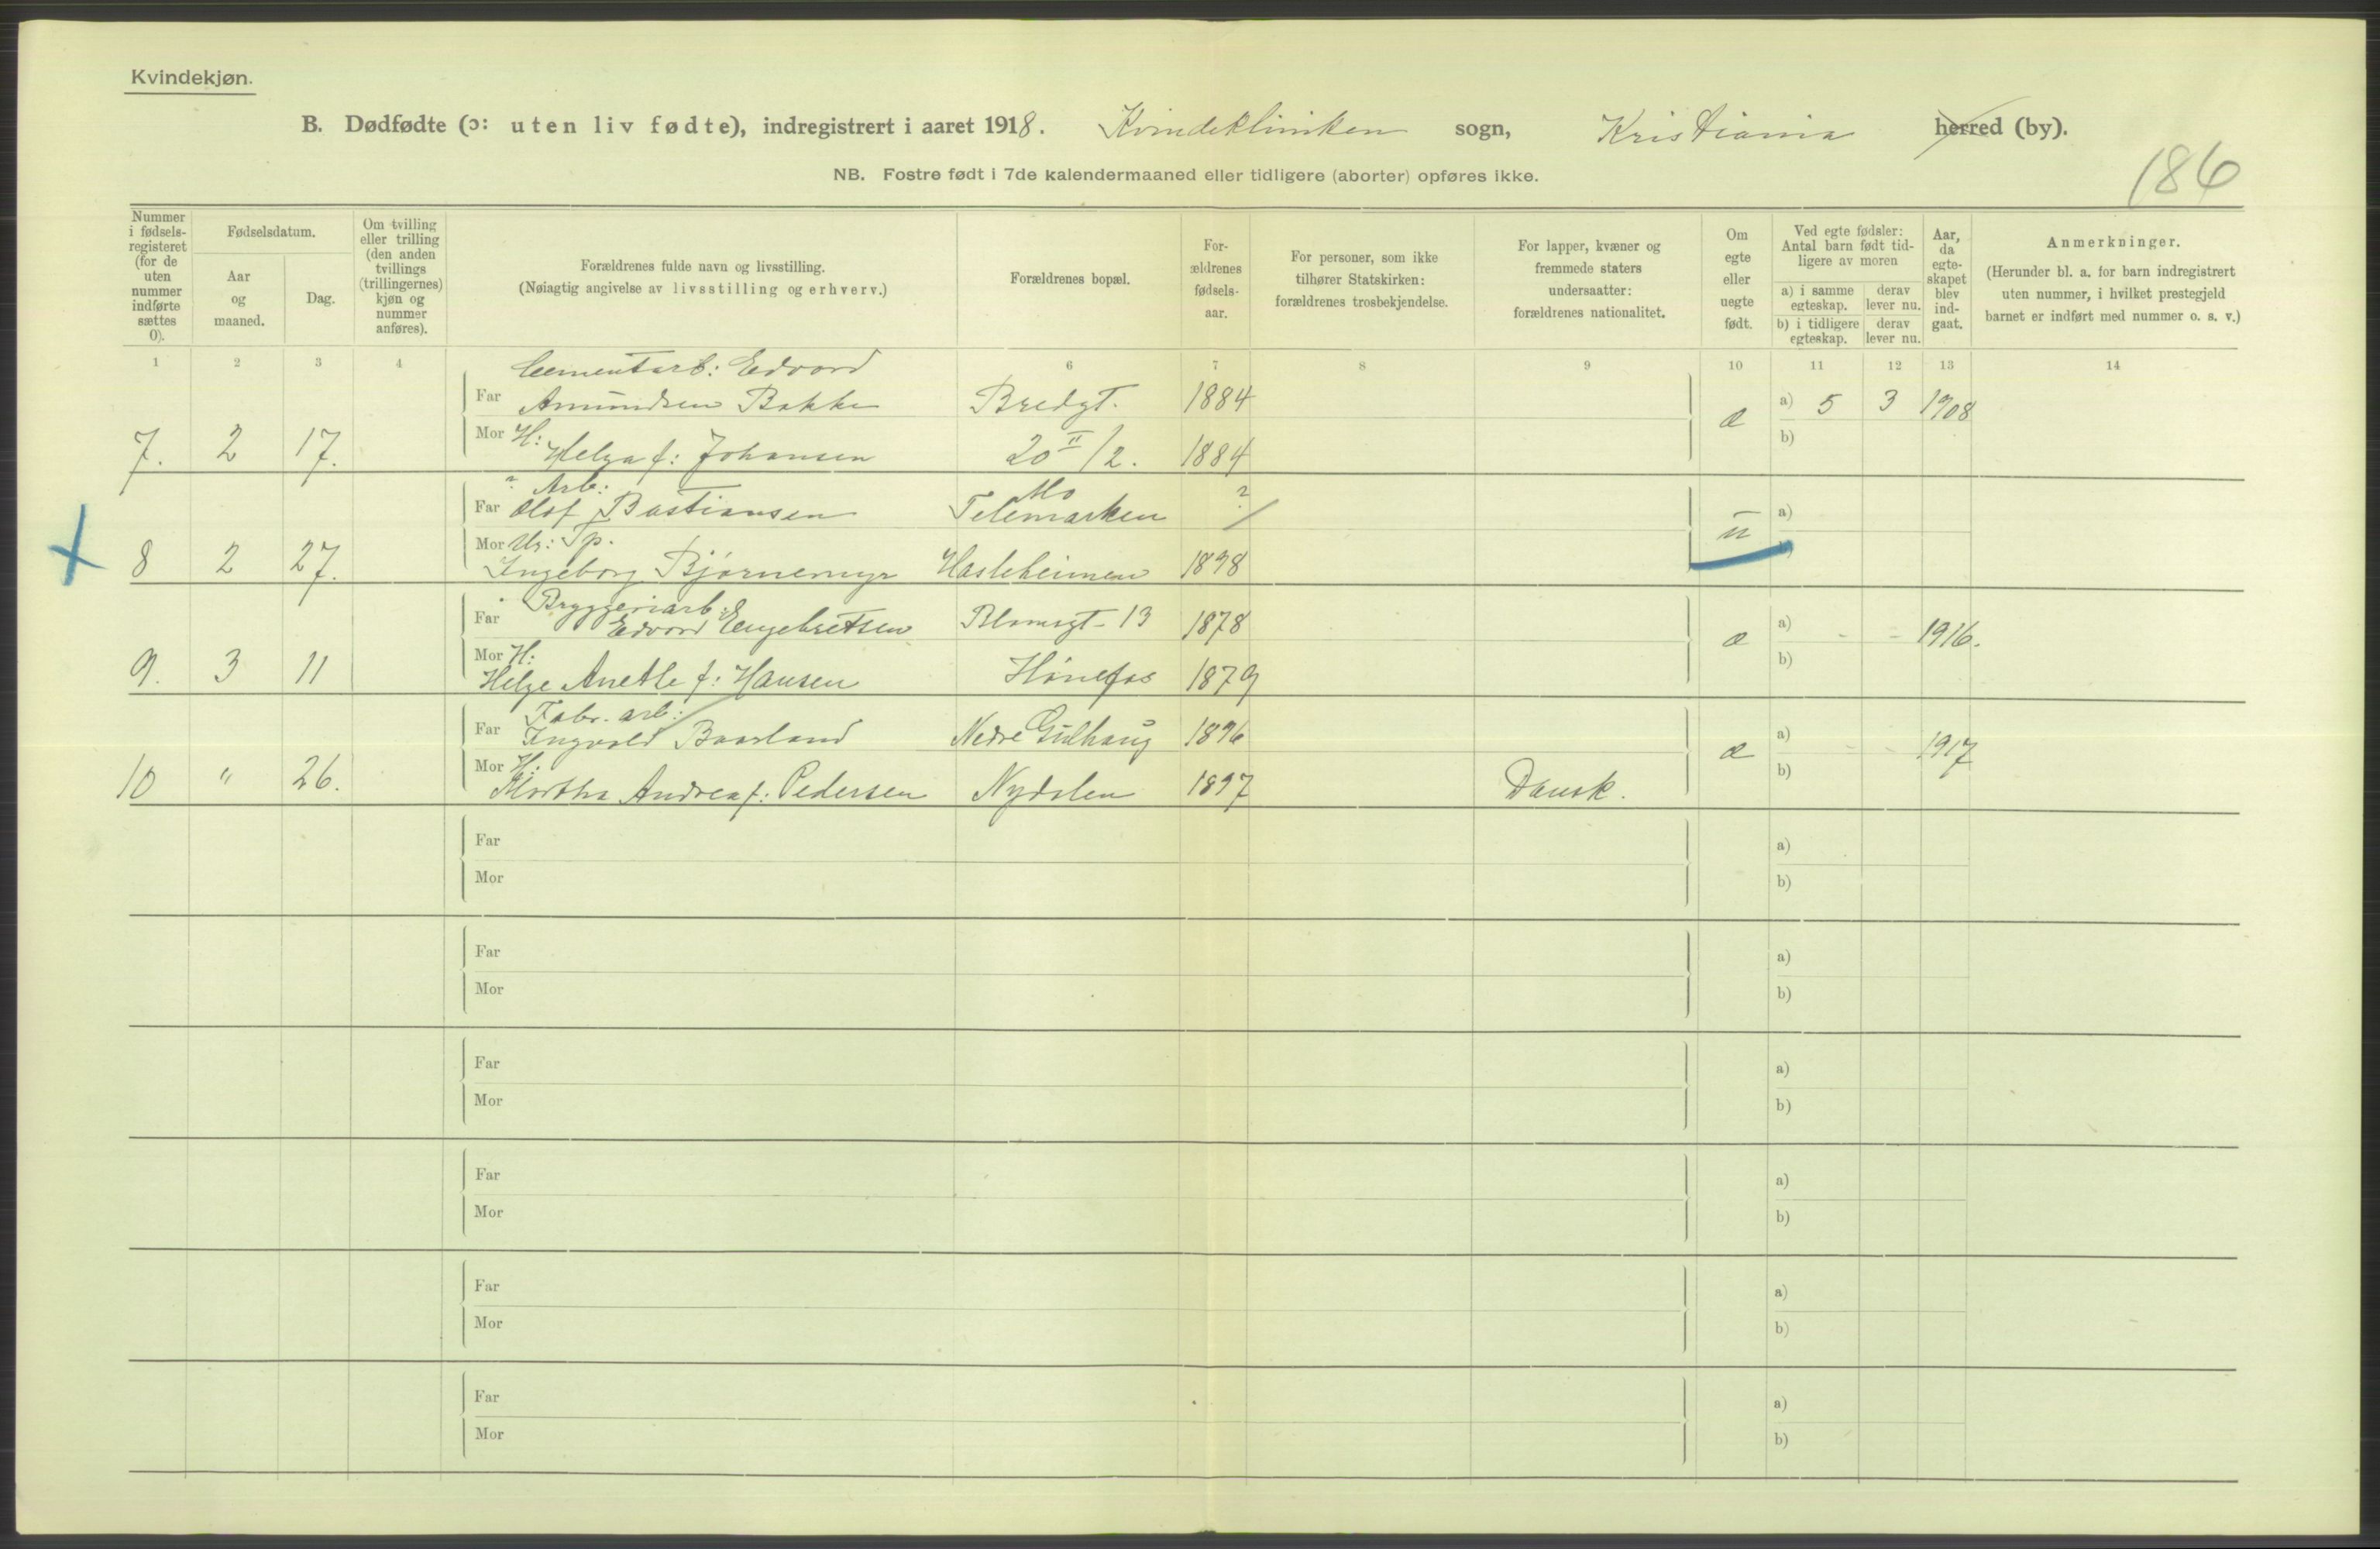 Kvindekjøn.
B. Dødfødte (ɔ: uten liv fødte), indregistrert i aaret 1918. Kvindekliniken sogn, Kristiania herred (by).
NB. Fostre født i 7de kalendermaaned eller tidligere (aborter) opføres ikke.
186
Nummer i fødsels-registeret (for de uten nummer indførte sættes 0).
Fødselsdatum.
Aar og maaned.
Dag.
Om tvilling eller trilling (den anden tvillings (trillingernes) kjøn og nummer anføres).
Forældrenes fulde navn og livsstilling.
(Nøiagtig angivelse av livsstilling og erhverv.)
Forældrenes bopæl.
For-ældrenes fødsels-aar.
For personer, som ikke tilhører Statskirken: forældrenes trosbekjendelse.
For lapper, kvæner og fremmede staters undersaatter: forældrenes nationalitet.
Om egte eller uegte født.
Ved egte fødsler: Antal barn født tid-ligere av moren
a) i samme egteskap. derav lever nu.
b) i tidligere egteskap. derav lever nu.
Aar, da egte-skapet blev ind-gaat.
Anmerkninger.
(Herunder bl. a. for barn indregistrert uten nummer, i hvilket prestegjeld barnet er indført med nummer o. s. v.)
1 2 3 4 6 7 8 9 10 11 12 13 14
Cementarb: Edvard
Far Amundsen Bakke Bredgt. 1884 a) 5 3 1908
Mor H: b)
7. 2 17. Helga f: Johansen 20 II/2. 1884
Arb: Mo ?
Far Olaf Bastiansen Telemarken ü a)
Mor Ug: Tp. b)
8 2 27. Ingeborg Bjørnemyr Hasleheimen 1898
Bryggeriarb:
Far Edvard Engebretsen Blomsgt. 13 1878 a) - - 1916.
Mor H: b)
9. 3 11 Helge Anette f: Hansen Hønefos 1879
Fabr. arb:
Far Ingvald Baarland Nedre Gulhaug 1896 a) - - 1917
Mor H: b)
10 " 26. Martha Andrea f: Pedersen Nydalen 1897 Dansk.
Far a)
Mor b)
Far a)
Mor b)
Far a)
Mor b)
Far a)
Mor b)
Far a)
Mor b)
Far a)
Mor b)